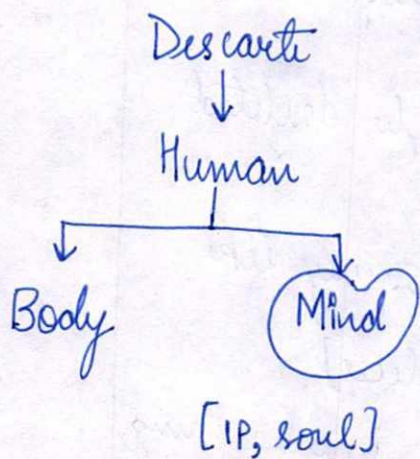 Descarte
Human
Body Mind
[IP, soul]